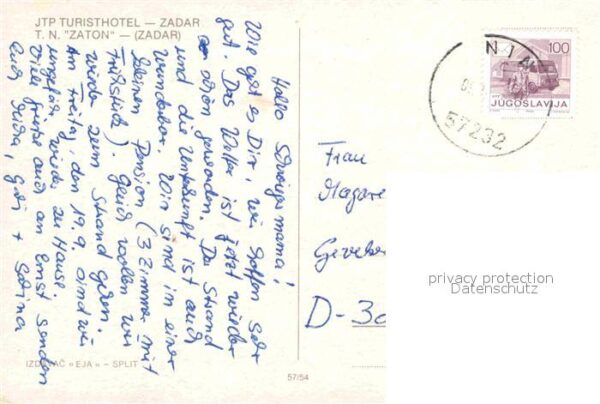 JTP TURISTHOTEL — ZADAR
T. N. "ZATON" — (ZADAR)
Hallo Schwiegermama!
Wie geht es Dir, wir hoffen sehr
gut. Das Wetter ist jetzt wieder
schön geworden. Der Strand
und die Unterkunft ist auch
wunderbar. Wir sind in einer
kleinen Pension (3 Zimmer mit
Frühstück). Gleich wollen wir
wieder zum Strand gehen.
Am Freitag, den 19.9. sind wir
ungefähr wieder zu Hause.
Viele Grüße auch an Ernst senden
Euch Jura, Gabi + Sabrina
IZDAVAČ « EJA » – SPLIT
57/54
NIN
57232
100
JUGOSLAVIJA
Frau
Magare
Geveke
D-30
privacy protection
Datenschutz